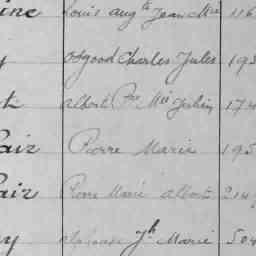 ine Louis Aug te Jean Mie 116
y Osgood Charles Jules 193
t Albert Mie Julien 174
air Pierre Marie 195
air Pierre Marie Albert 214
y Alphonse Jh Marie 504